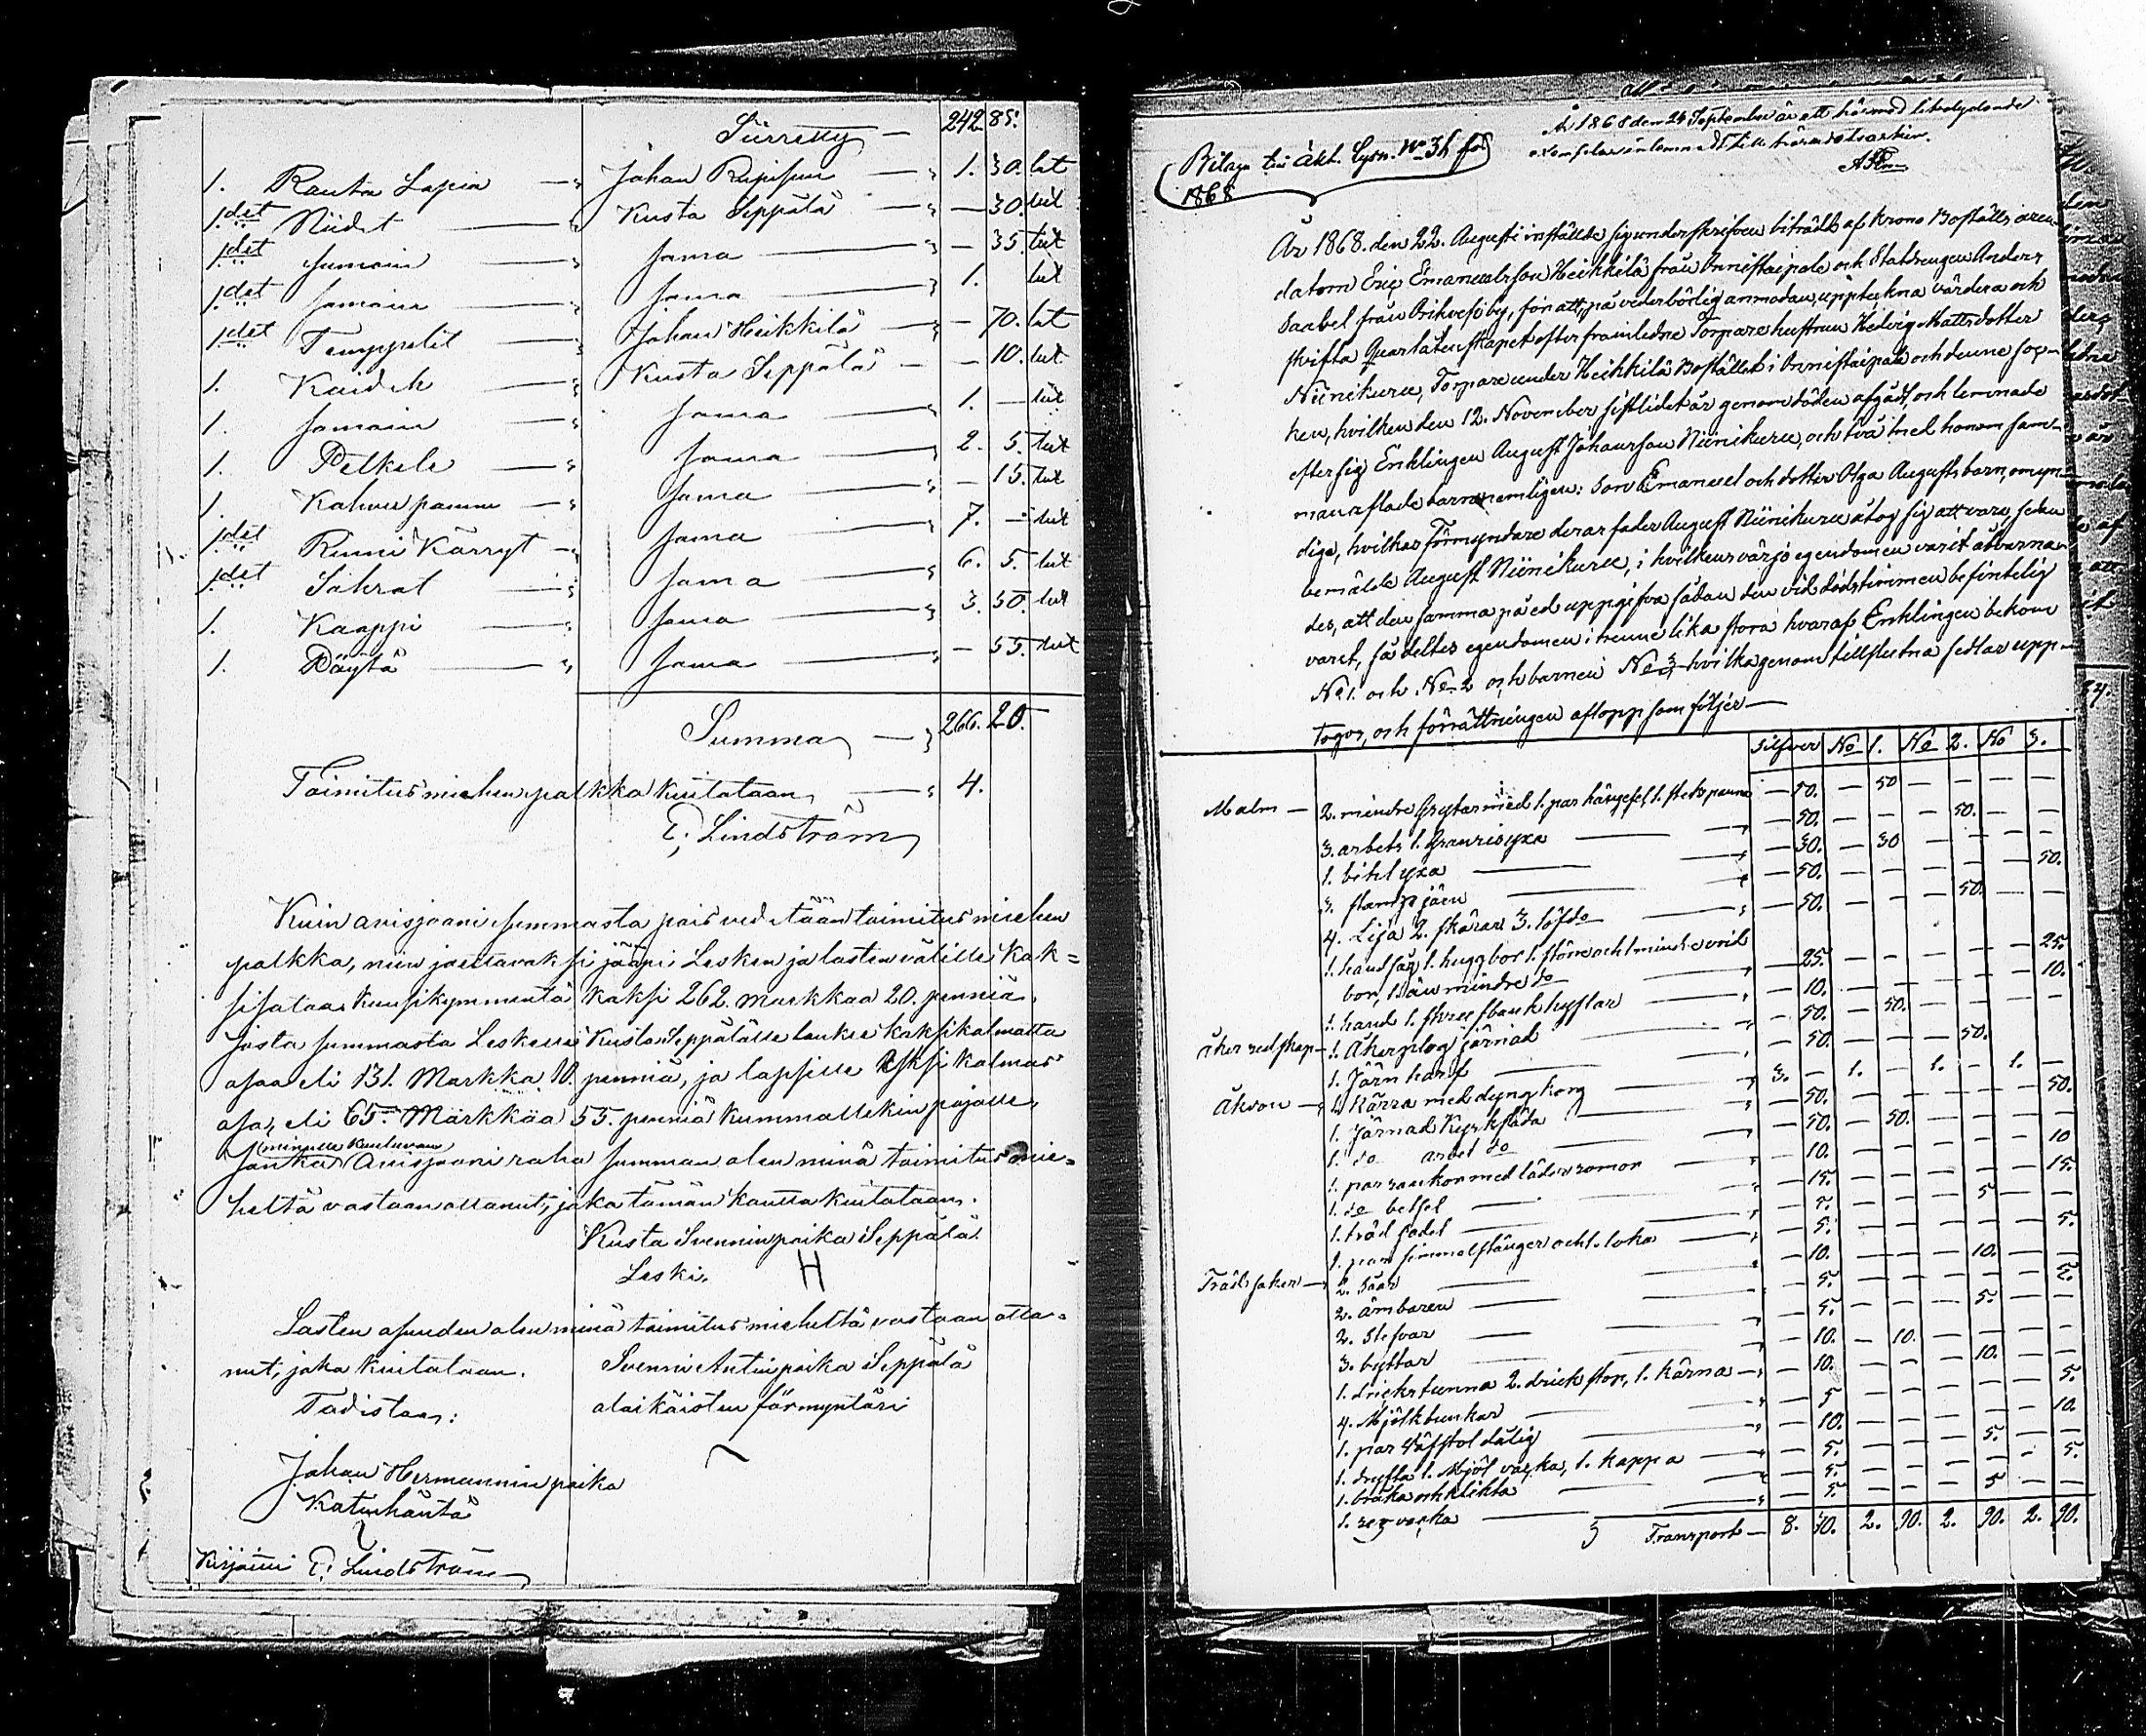 Siirretty — 242 85.
1. Rauta Lapia — " Johan — " 1. 30. lut
1 det Niidet — " Kusta Seppälä — " — 30. lut
1 det samain — " sama — " — 35. lut
1 det samain — " sama — " 1. lut
1 det Temppelit — " Johan Heikkilä — " — 70. lut
1. — " Kusta Seppälä — — 10. lut
1. samain — " sama — " 1. — lut
1. — " sama — " 2. 5. lut
1. Kahvu pannu — " sama — " — 15. lut
1 det Kärryt — " sama — " 7. — lut
1 det Sahrat — " sama — " 6. 5. lut
1. Kaappi — " sama — " 3. 50. lut
1. Päytä — " sama — " — 55. lut
Summa — " 266. 20.
Toimitus miehen palkka kuitataan, — " 4.
E, Lindström
Kuin avisjooni summasta pois vedetään toimitus miehen
palkka, niin jaettavaksi jääpi Lesken ja lasten välille Kak=
sisataa kuusikymmentä kaksi 262. markkaa 20. penniä,
josta summasta Leskelle Kusta Seppälälle laukee kaksi kolmatta
osaa eli 131. Markka 10. penniä, ja lapsille yksi kolmas
osa, eli 65. Markkaa 55. penniä kummallekin pojalle,
(minulle kuuluvan)
Jonka Avisjooni raha summan olen minä toimitus mie=
heltä vastaan ottanut, joka tämän kautta kuitataan.
Kusta Svenninpoika Seppälä.
Leski. H
Lasten osuuden olen minä toimitus mieheltä vastaan otta=
nut, joka kuitataan. Svenni Antinpoika Seppälä
Todistaa: alaikäisten förmyntäri
Johan Hermanninpoika
Katinhäntä
Kirjoitti E, Lindström
År 1868 den 24 September är ett härmed likalydande
exemplar inlemnadt till häradsarkivet.
Bilaga till Akt. Lysn. No 3h för
1868
År 1868. den 22. Augusti inställde sig underskrifven biträdd af Krono Boställs aren
datorn Eric Emanuelsson Heikkilä från Onnistaipale och Statdrengen Anders
Saxbel från by, för att, på vederbörlig anmodan, uppteckna värdera och
skifta Quarlåtenskapet efter framledne Torpare hustrun Hedvig Mattsdotter
Niinikuru, Torpare under Heikkilä Bostället i Onnistaipale och denne Soc=
ken, hvilken den 12. November sistlidet år genom döden afgått, och lemnade
efter sig Enklingen August Johansson Niinikuru, och två med honom sam=
manaflade barn nemligen: Son Emanuel och dotter Olga Augusts barn, omyn=
dige, hvilkas Förmyndare deras fader August Niinikuru åtog sig att vara, sedan
bemälde August Niinikuru, i hvilkens värjo egendomen varit åtvarna=
des, att den samma på ed uppgifva sådan den vid dödstimmen befintelig
varit, så deltes egendomen i trenne lika stora hvaraf Enklingen bekom
No 1. och No 2 och barnen No 3, hvilka genom tillslutna sedlar upp=
togos, och förrättningen aflopp som följer —
Silfver No 1. No 2. No 3.
Malm — 2. mindre Grytor med 1. par hängsel, 1. stekspanna — 50. — 50 — — — —
3. arbets 1. Granrisyxa — " — 50. — — — 50. — —
1. bihl yxa — " — 30. — 30 — — — —
3. stampjärn — " — 50. — — — — — 50.
4. Lija 2. skäror 3. löfdo — " — 50. — — — 50. — —
1. handsåg 1. huggbor 1. större och 1 mindre vril
bor, 1. än mindre do — " — 25. — — — — — 25.
1. hand 1. skrufbank hyflar — " — 10. — — — — — 10.
Åker redskap — 1. Åkerplog järnad — " — 50. — 50. — — — —
1. Järn harf — " — 50. — — — 50. — —
Åkdon — 1. Kärra med dyngkorg — " 3. — 1. — 1. — 1. —
1. Järnad Kyrksläda — " — 50. — — — — — 50.
1. do arbet do — " — 50. — 50. — — — —
1. par rankor med läder remor — " — 10. — — — — — 10
1. do betsel — " — 15. — — — — — 15.
1. träd sadel — " — 5. — — — 5 — —
1. par simmelstänger och 1. loka — " — 5. — — — — — 5.
Träd saker — 2. Såar — " — 10. — — — 10. — —
2. ämbaren — " — 5. — — — — — 5.
2. Stefvar — " — 5. — — — 5. — —
3. byttor — " — 10. — 10. — — — —
1. dricks tunna 2. drick stop, 1. Kärna — " — 10. — — — 10. — —
4. Mjölkbunkar — " — 5 — — — — — 5.
1. par Väfstol dålig — " — 10. — — — — — 10.
1. dryfta 1. Mjöl vacka, 1. Kappa — " — 5. — — — 5. — —
1. bråka och klikta — " — 5. — — — — — 5.
1. reg vacka — " — 5. — — — 5 — —
Transport — 8. 70. 2. 90. 2. 90. 2. 90.